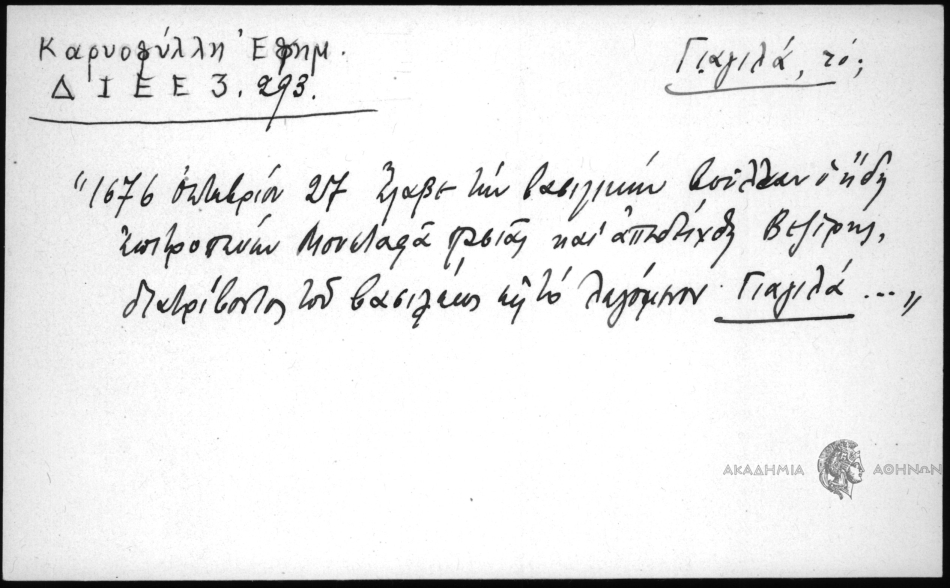 Καρυοφύλλη Ἐφημ.
Δ Ι Ε Ε 3. 293.
Γιαγιλά, τό;
"1676 ὀκτωβρίου 27 ἔλαβε τὴν βασιλικὴν βούλλαν ὁ ἤδη
ἐπιτροπεύων Μουσταφᾶ πασιᾶς καὶ ἀπεδείχθη Βεζίρης,
διατρίβοντος τοῦ βασιλέως εἰς τὸ λεγόμενον Γιαγιλά ..."
ΑΚΑΔΗΜΙΑ ΑΘΗΝΩΝ